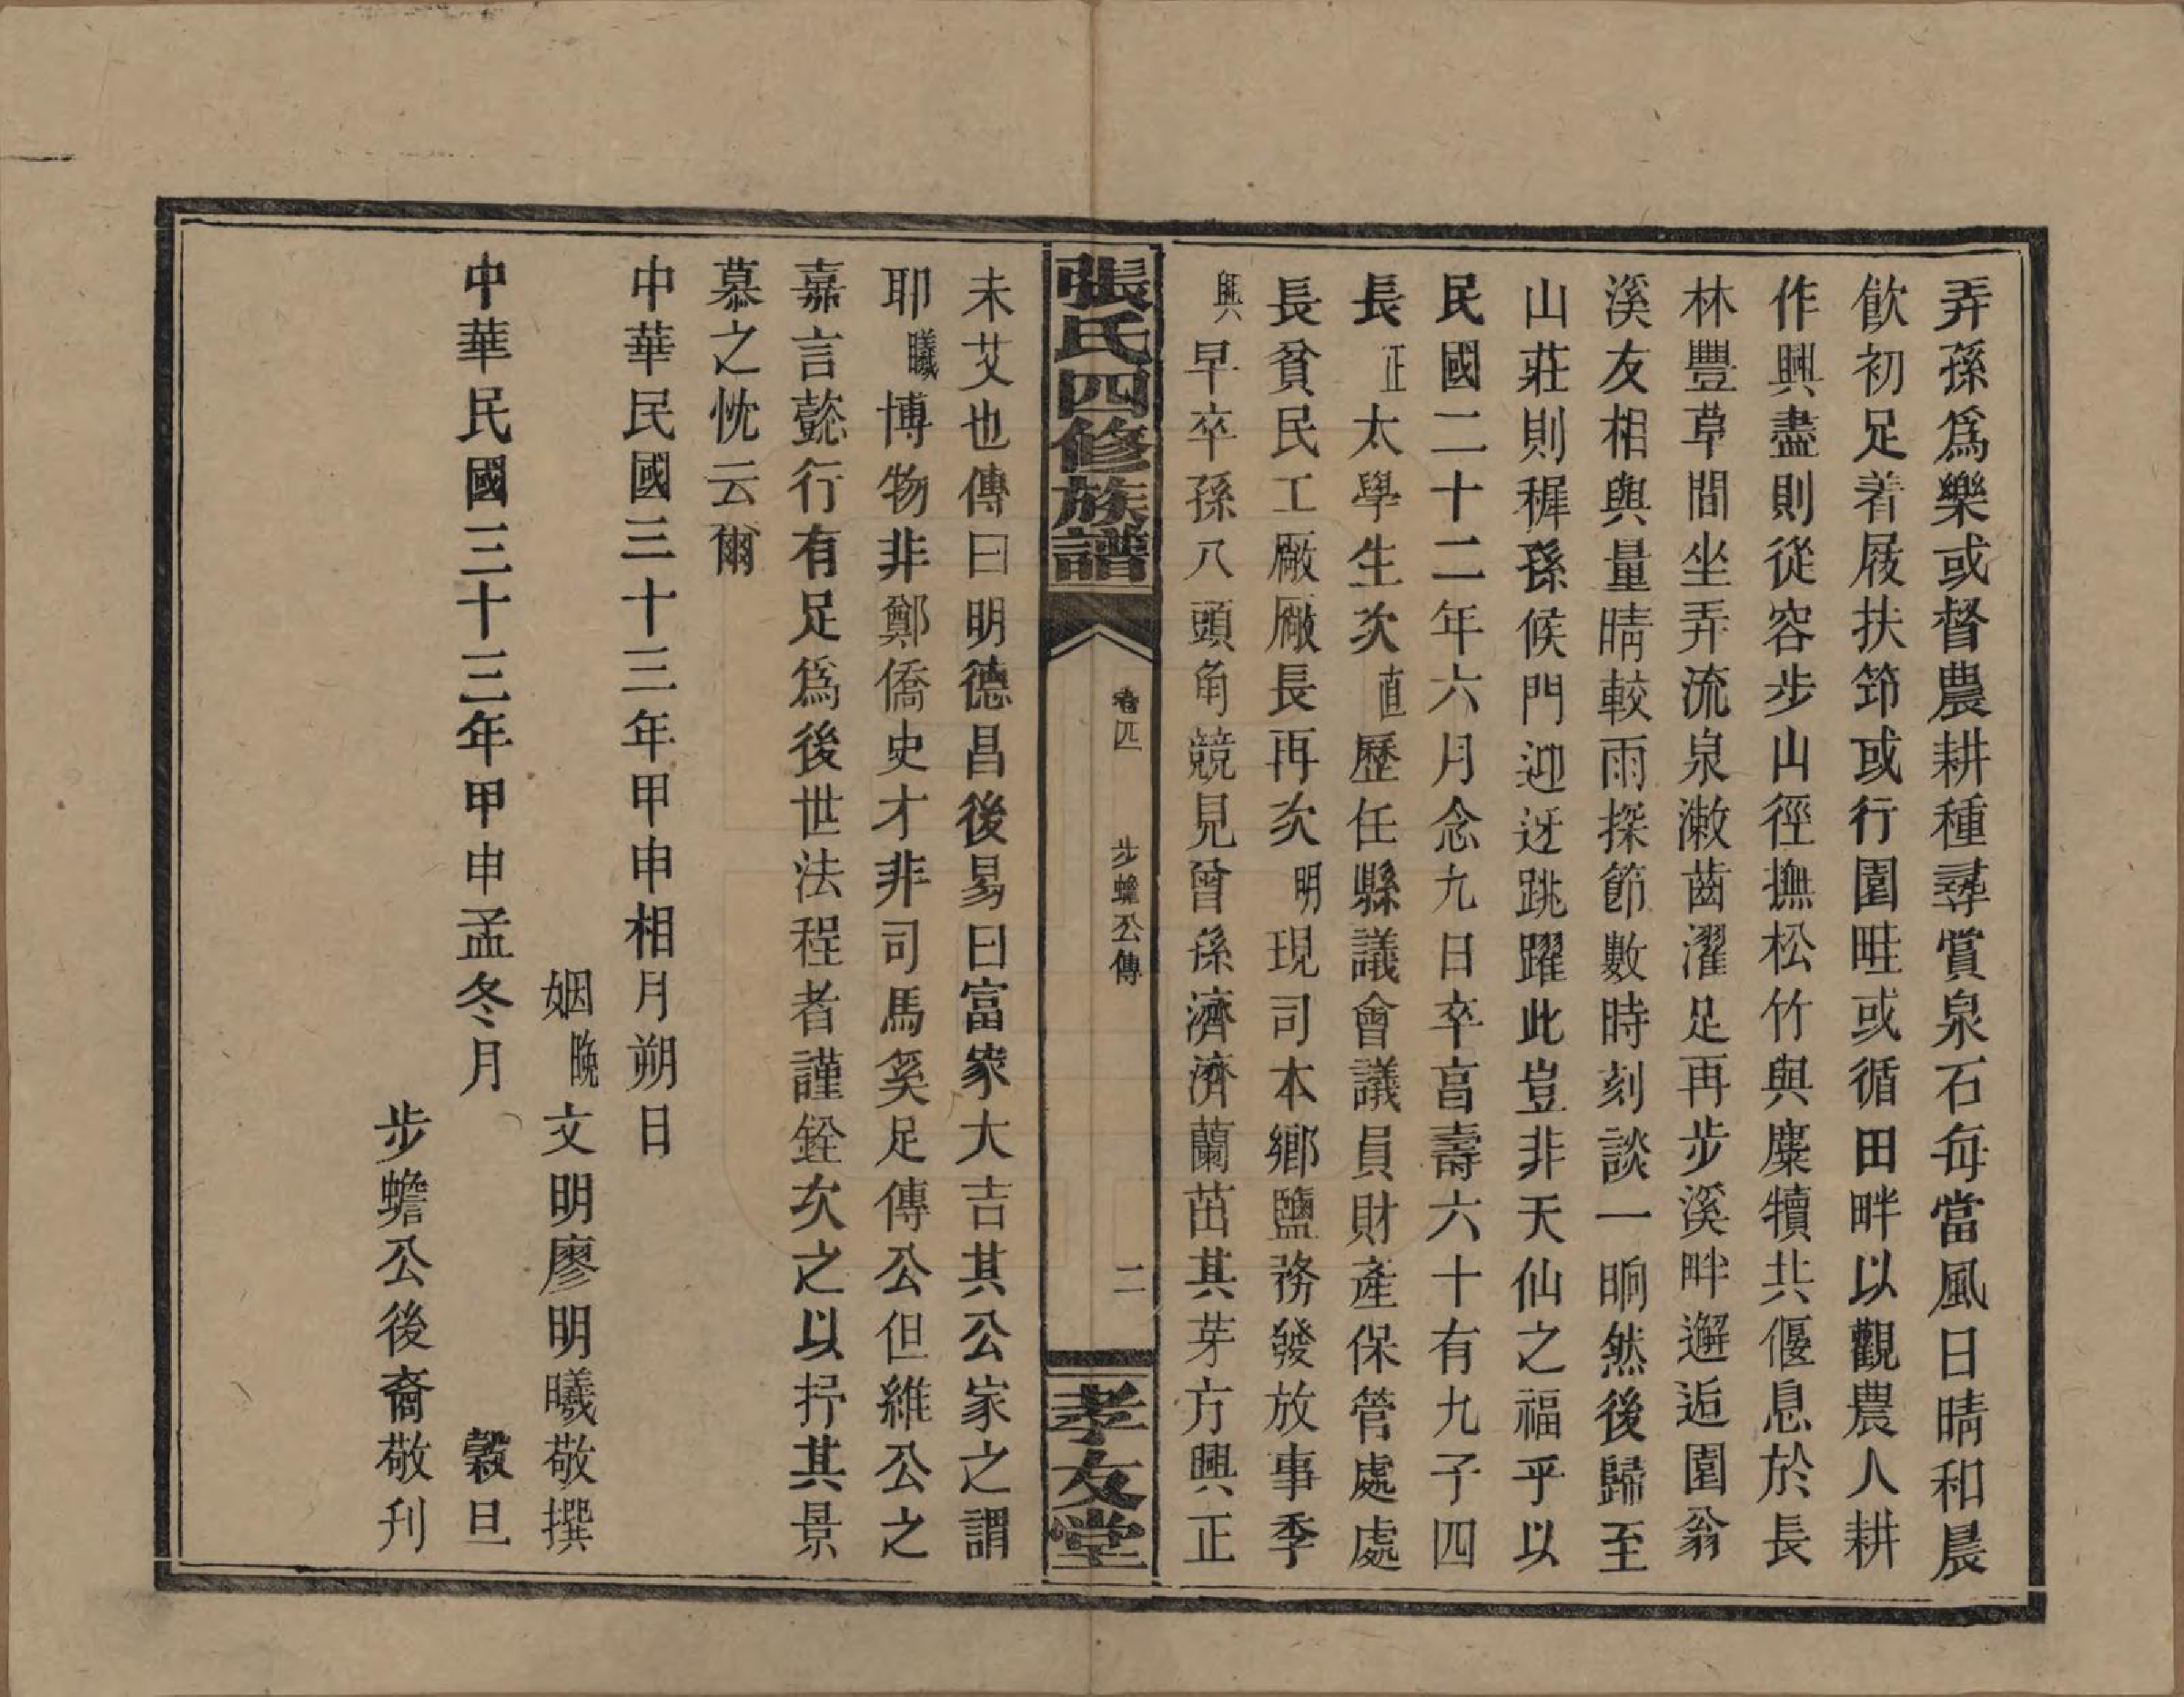 弄孫爲樂或督農耕種尋賞泉石每當風日晴和晨
飲初足着屐扶筇或行園畦或循田畔以觀農人耕
作興盡則從容步山徑撫松竹與麋犢共偃息於長
林豐草間坐弄流泉漱齒濯足再步溪畔邂逅園翁
溪友相與量晴較雨探節數時刻談一晌然後歸至
山莊則穉孫候門迎迓跳躍此豈非天仙之福乎以
民國二十二年六月念九日卒亯壽六十有九子四
長正太學生次直歷任縣議會議員財產保管處處
長貧民工廠廠長再次明現司本鄉鹽務發放事季
興早卒孫八頭角競見曾孫濟濟蘭茁其芽方興正
張氏四修族譜
卷四
步蟾公傳
二
孝友堂
未艾也傳曰明德昌後易曰富家大吉其公家之謂
耶曦博物非鄭僑史才非司馬奚足傳公但維公之
嘉言懿行有足爲後世法程者謹銓次之以抒其景
慕之忱云爾
中華民國三十三年甲申相月朔日
姻晚文明廖明曦敬撰
中華民國三十三年甲申孟冬月
穀旦
步蟾公後裔敬刋